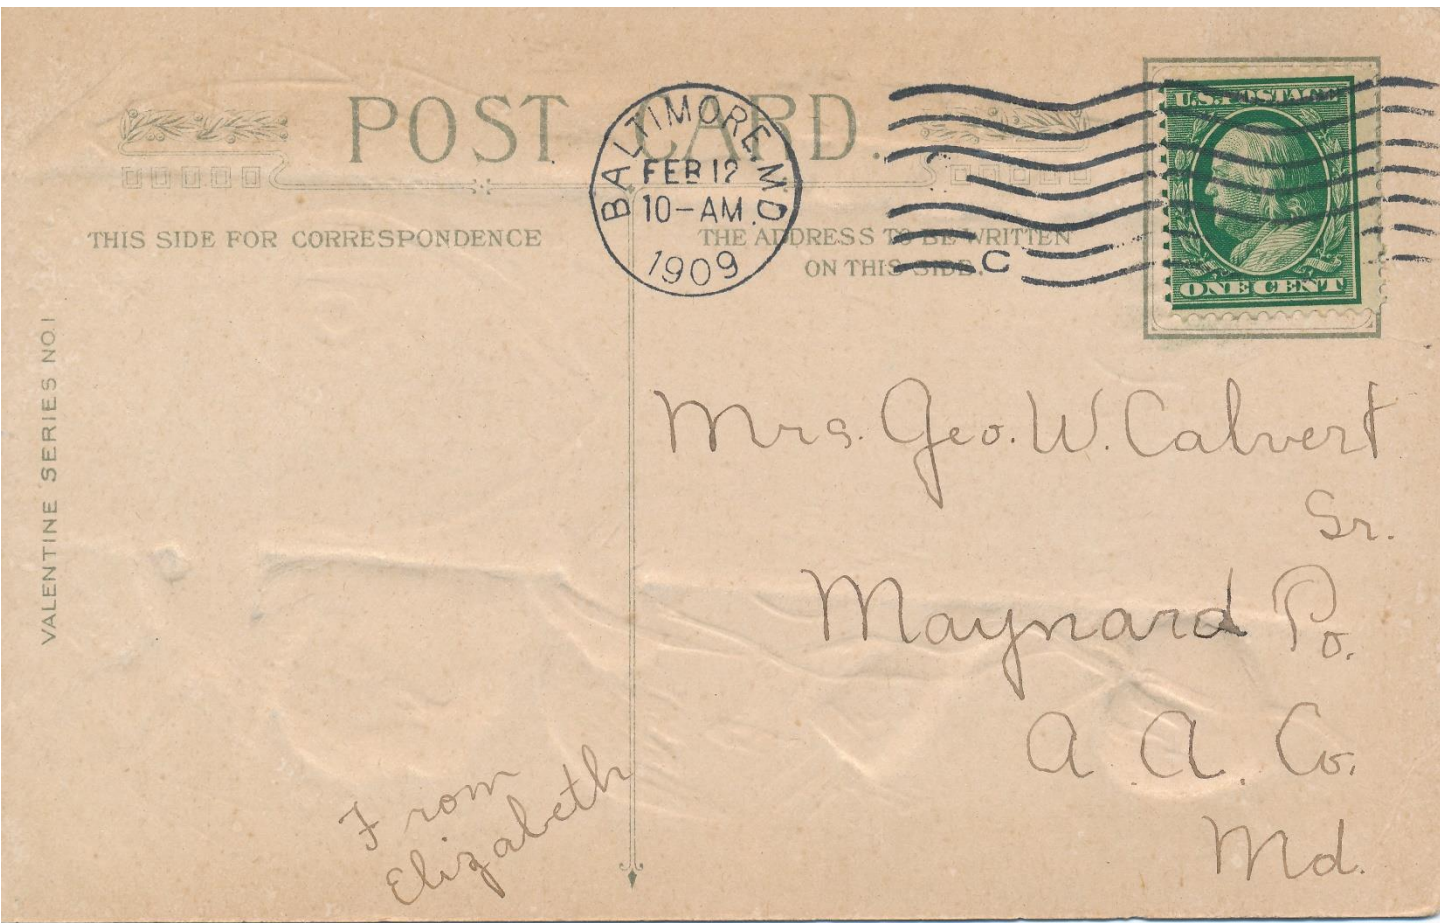 POST CARD.
BALTIMORE, MD.
FEB 12
10-AM
1909
C
U.S. POSTAGE
ONE CENT
THIS SIDE FOR CORRESPONDENCE
THE ADDRESS TO BE WRITTEN
ON THIS SIDE.
VALENTINE SERIES NO. 1
Mrs. Geo. W. Calvert
Sr.
Maynard Po.
A. A. Co.
Md.
From
Elizabeth